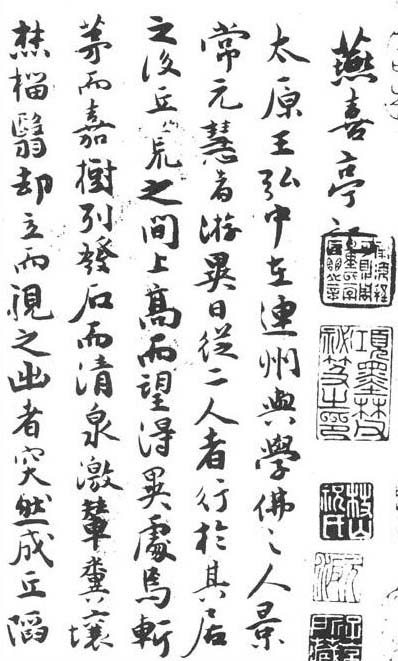 燕喜亭記
項墨林父
秘笈之印
枝山
祝氏
太原王弘中在連州與學佛之人景
常元慧者游異日從二人者行於其居
之後丘荒之間上高而望得異處焉斬
茅而嘉樹列發石而清泉激輦糞壤
焚椔翳却立而視之出者突然成丘陷